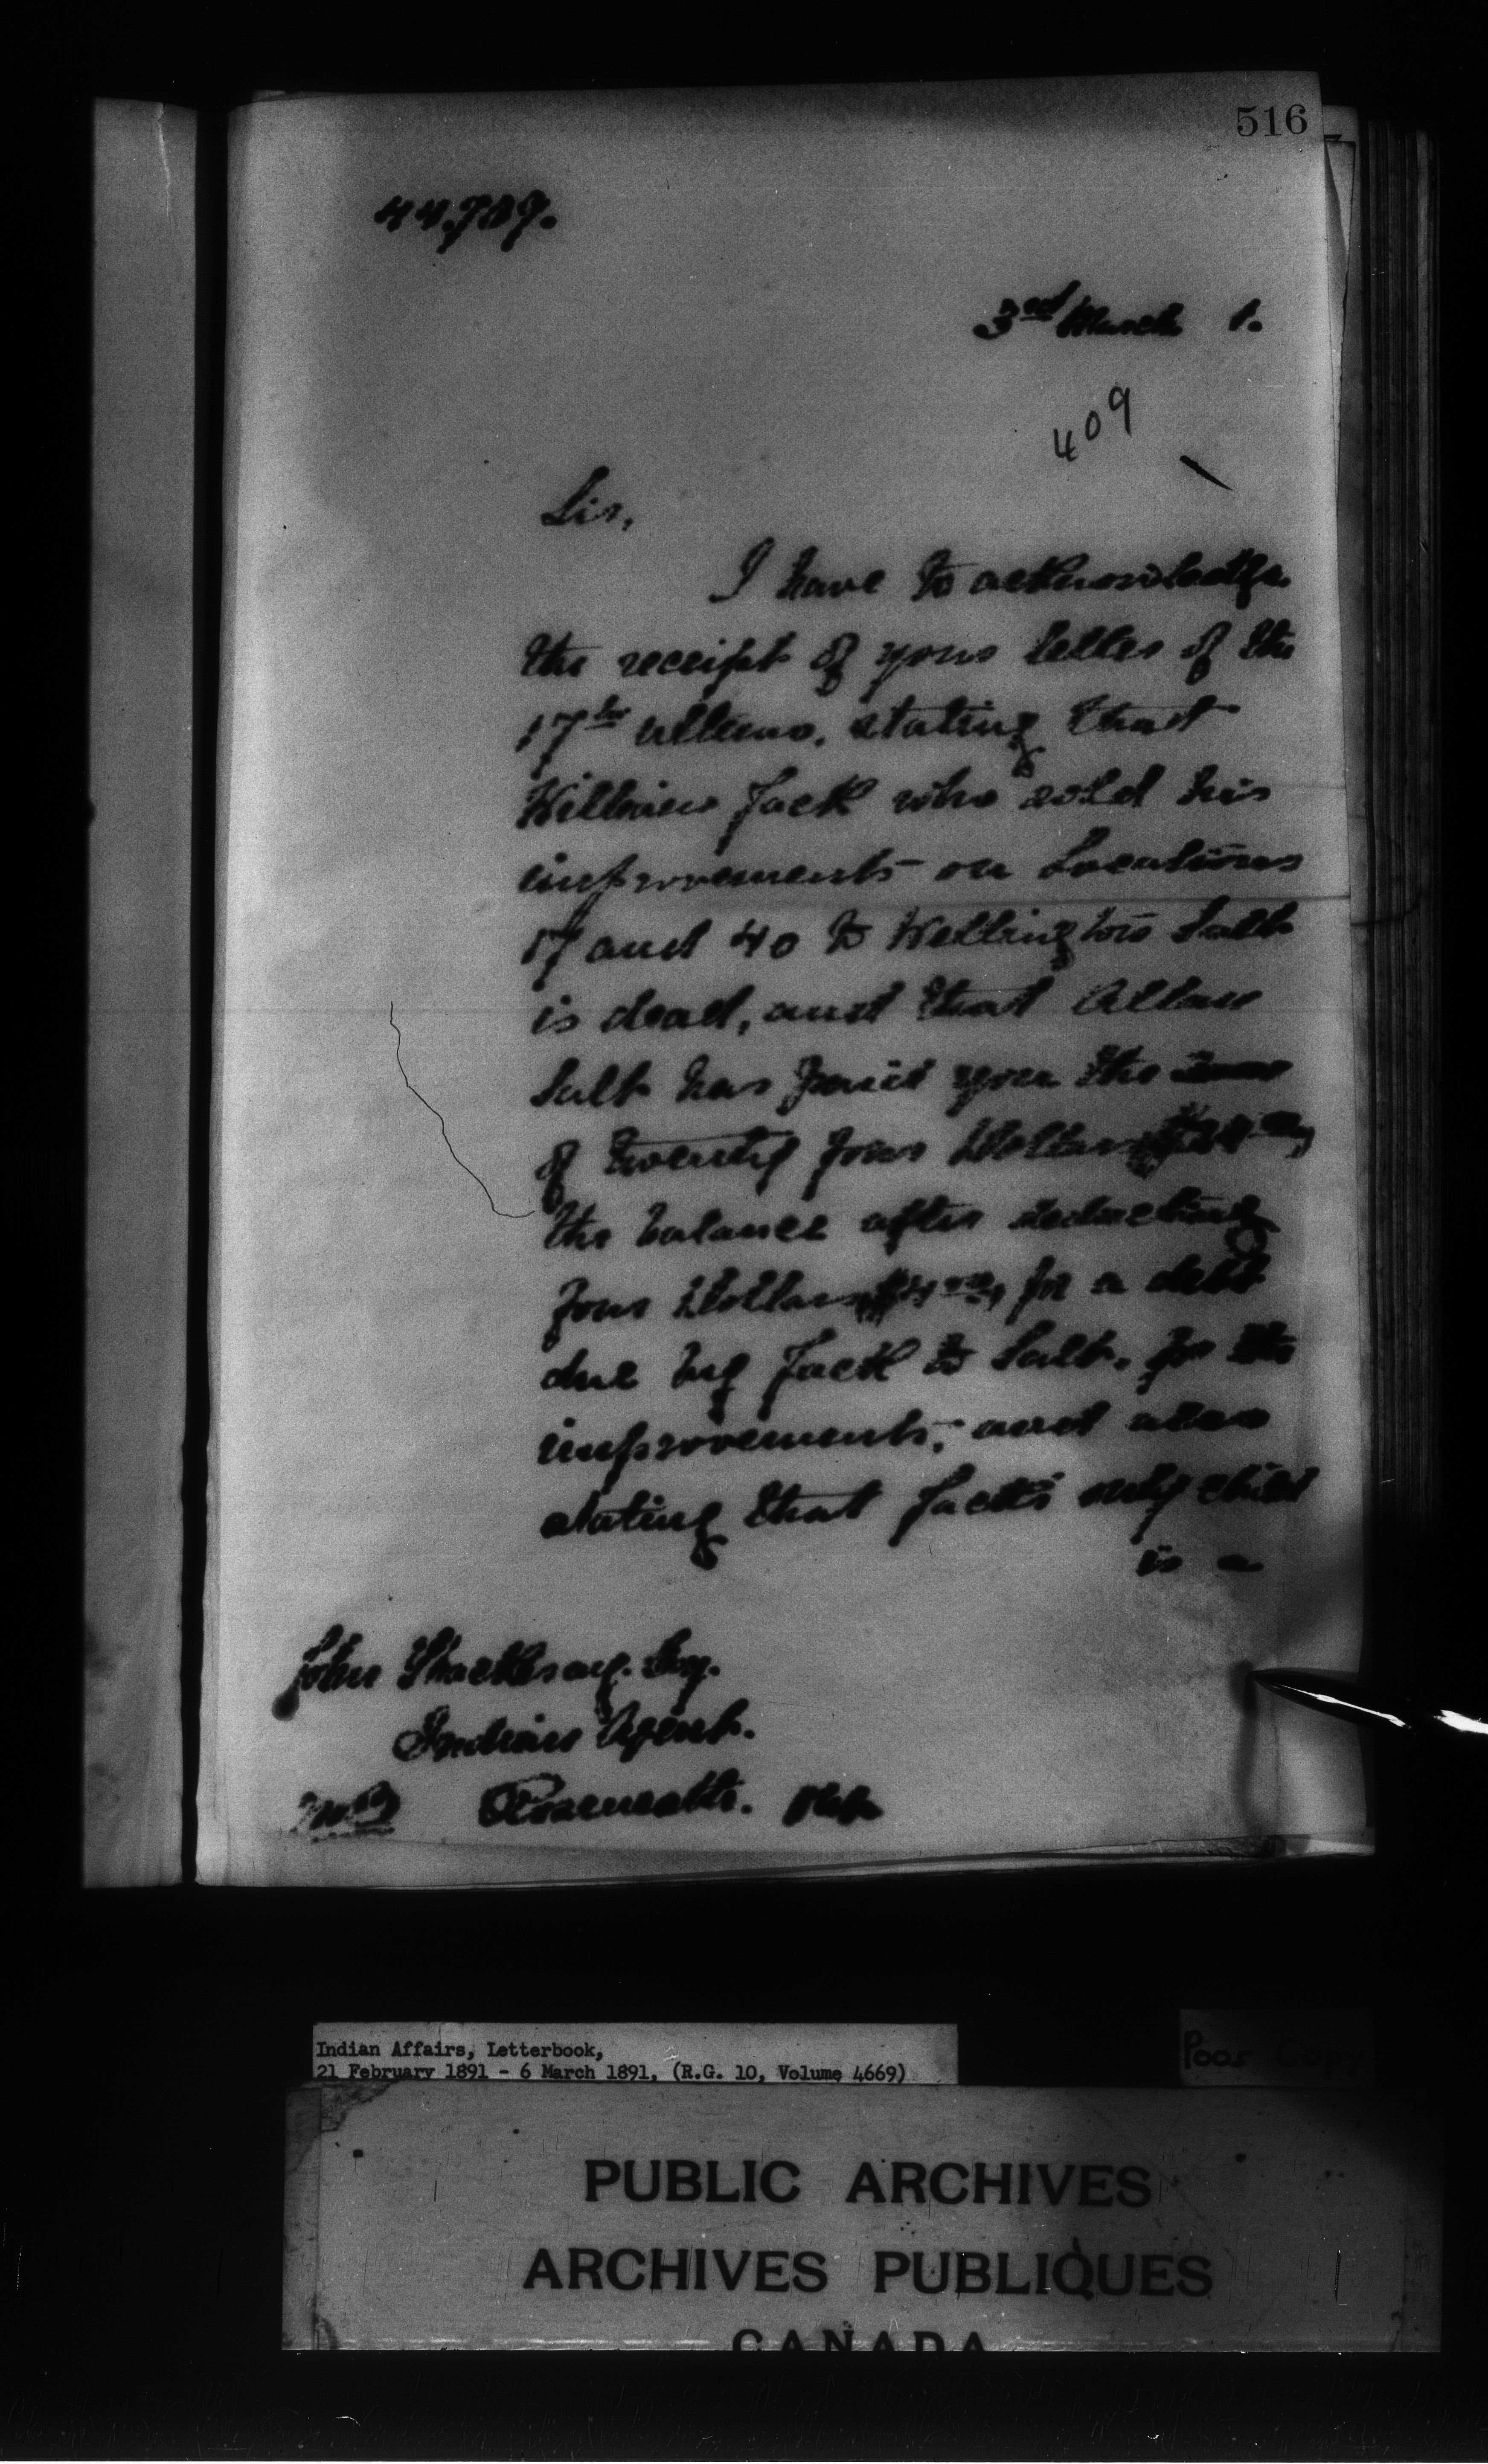 516
44,709.
3rd March 1.
409
Sir,
I have to acknowledge
the receipt of your letter of the
17th ultimo, stating that
William Jack who sold his
improvements on Locations
17 and 40 to Wellington Salt
is dead, and that Allan
Salt has paid you the sum
of twenty four Dollars, $24.00,
the balance after deducting
four Dollars, $4.00, for a debt
due by Jack to Salt, for the
improvements, and also
stating that Jack's only child
is a
John Thackeray. Esq.
Indian Agent.
Roseneath. Ont.
Indian Affairs, Letterbook,
21 February 1891 - 6 March 1891, (R.G. 10, Volume 4669)
Poor Copy
PUBLIC ARCHIVES
ARCHIVES PUBLIQUES
CANADA